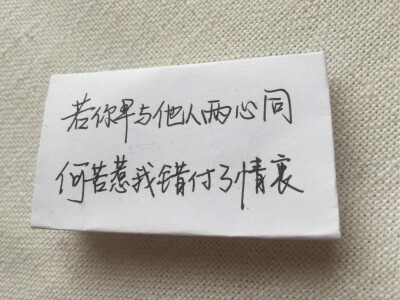 若你早与他人两心同
何苦惹我错付了情衷